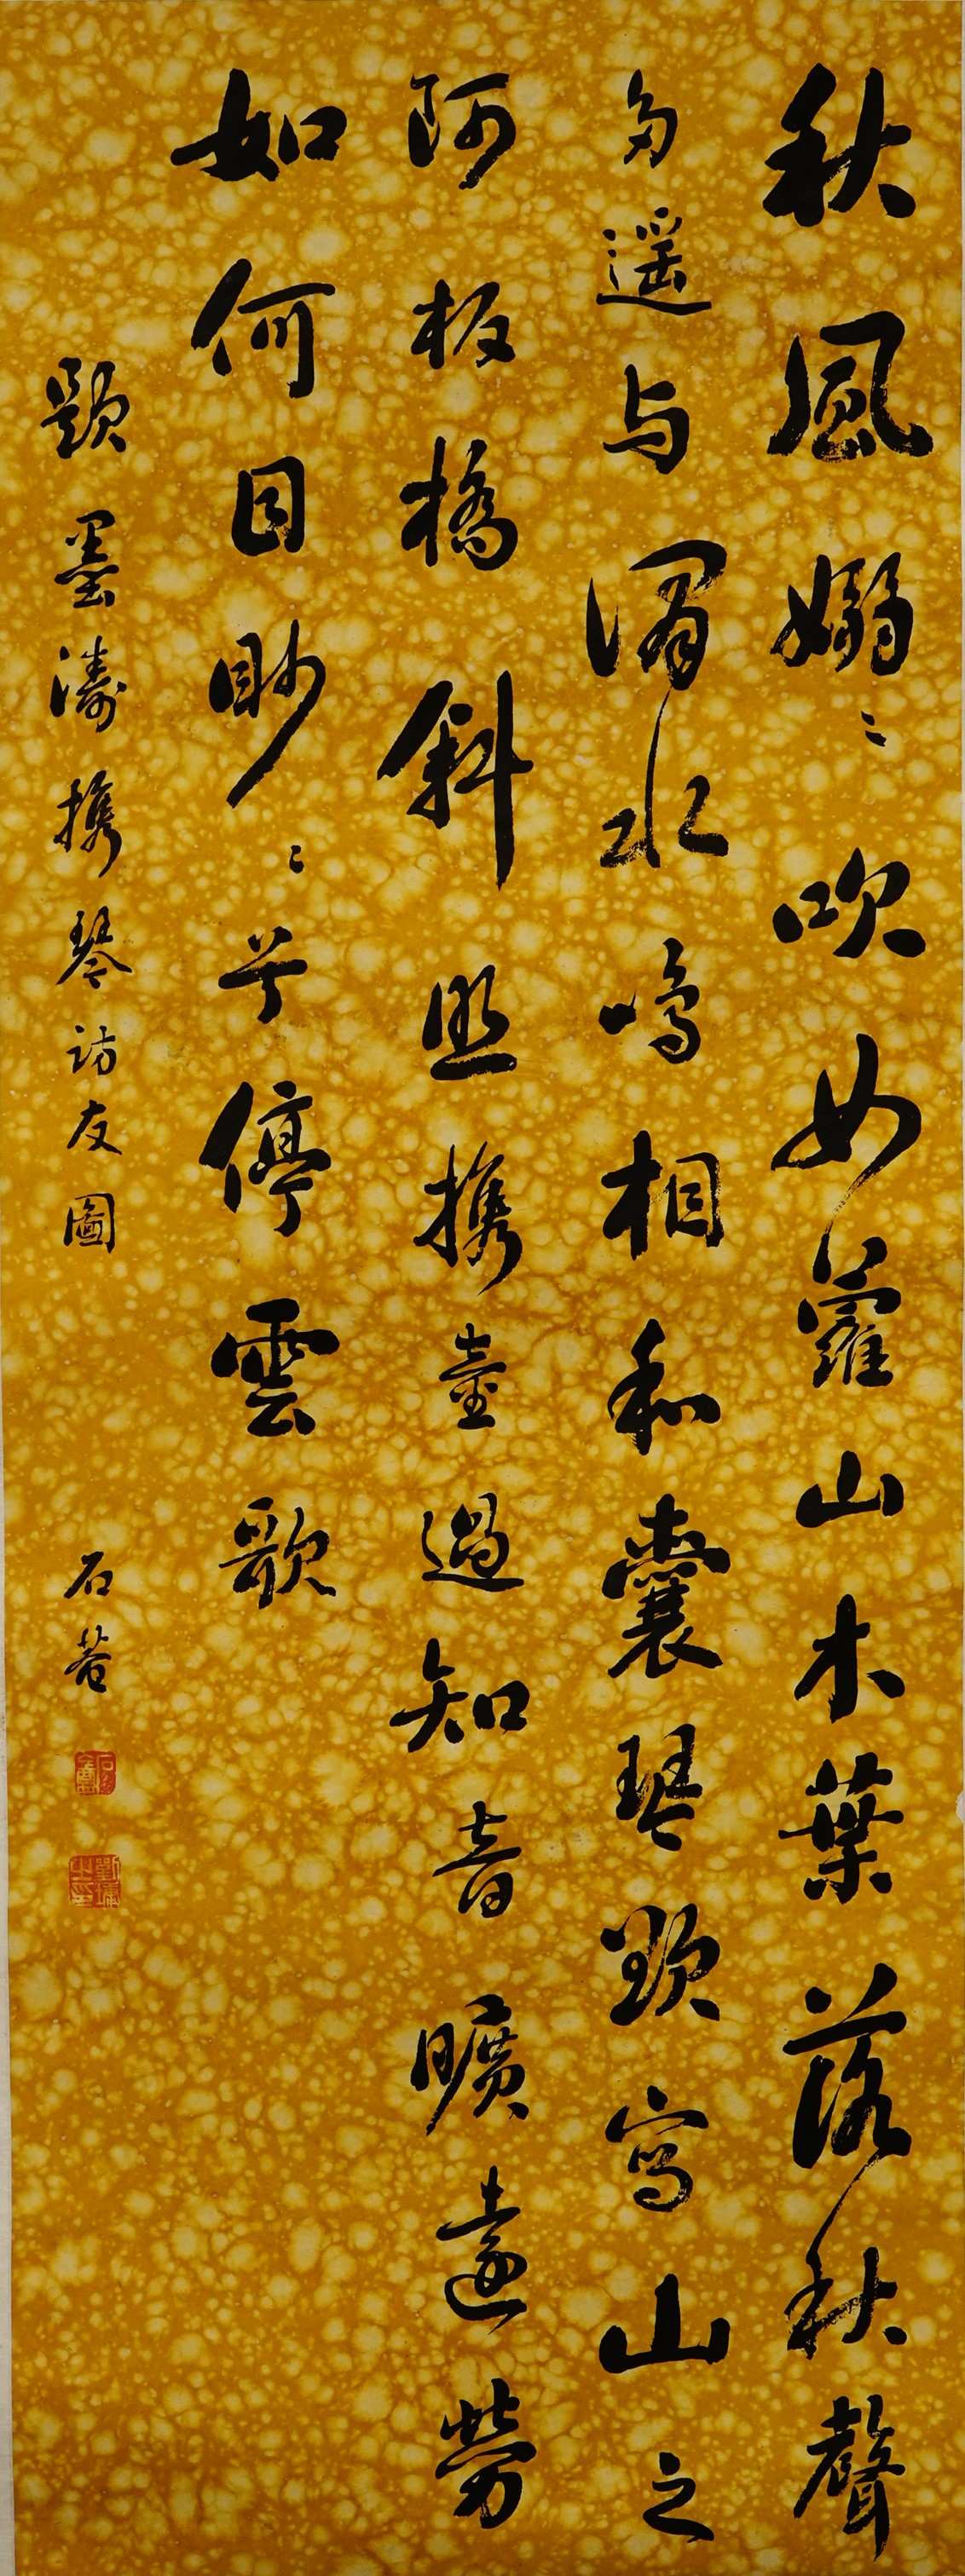 秋風嫋〻吹女蘿山木葉落秋聲
多遥与澗水鳴相和囊琴欲寫山之
阿板橋斜照携壺過知音曠遠勞
如何目眇〻兮停雲歌
題墨濤携琴訪友圖
石菴
劉墉之印